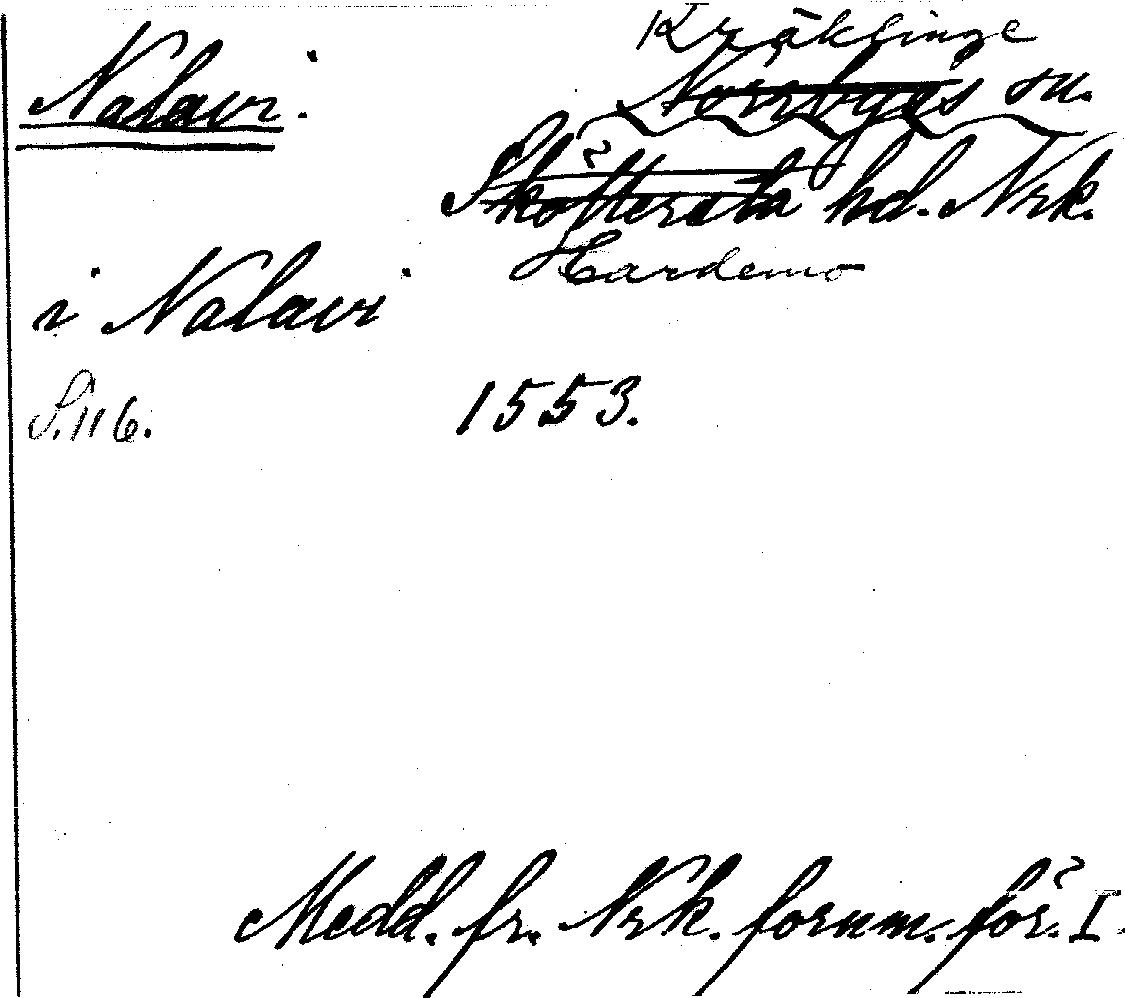 Kräklinge
Nalavi. Norrbyås sn.
Sköllersta hd. Nrk.
Hardemo
i Nalavi
S. 116. 1553.
Medd. fr. Nrk. fornm. för. I.